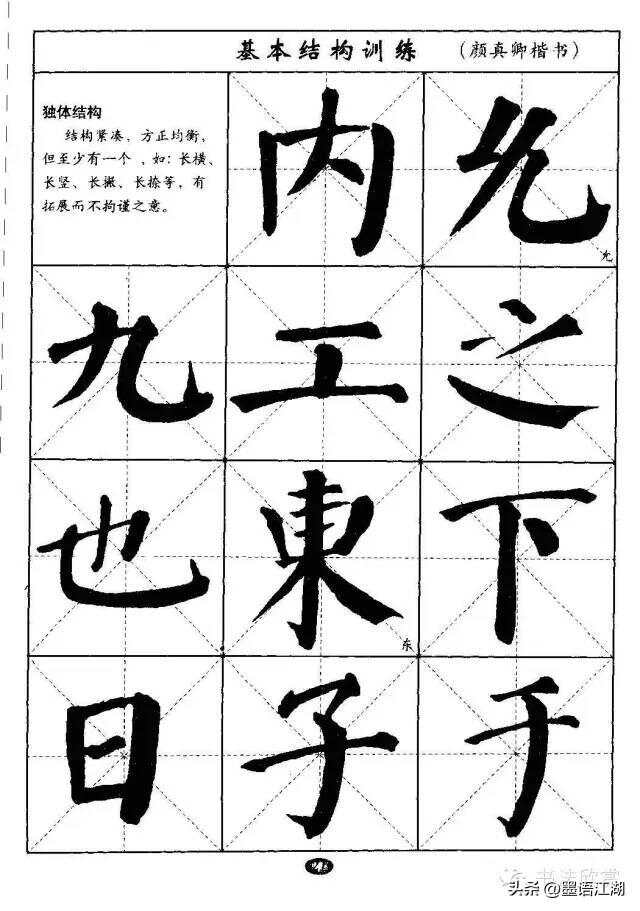 基本结构训练 （颜真卿楷书）
独体结构
结构紧凑，方正均衡，
但至少有一个 ，如：长横、
长竖、长撇、长捺等，有
拓展而不拘谨之意。
内 允
允
九 工 之
也 東 下
东
日 子 于
书法欣赏
头条 @墨语江湖